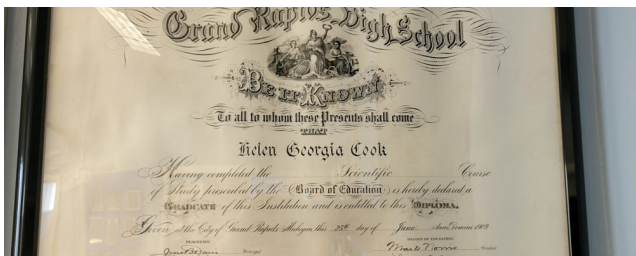 Grand Rapids High School
BE IT KNOWN
To all to whom these Presents shall come
THAT
Helen Georgia Cook
Having completed the Scientific Course
of Study prescribed by the Board of Education is hereby declared a
GRADUATE of this Institution and is entitled to this DIPLOMA.
Given at the City of Grand Rapids Michigan this 25th day of June Anno Domini 1909
BOARD OF EDUCATION
Principal President